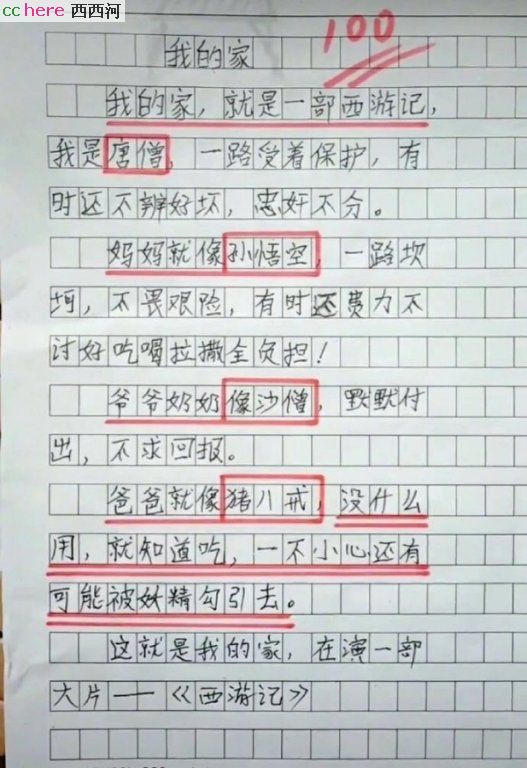 cchere 西西河
100
我的家
我的家，就是一部西游记，
我是唐僧，一路受着保护，有
时还不辨好坏，忠奸不分。
妈妈就像孙悟空，一路坎
坷，不畏艰险，有时还费力不
讨好吃喝拉撒全负担！
爷爷奶奶像沙僧，默默付
出，不求回报。
爸爸就像猪八戒，没什么
用，就知道吃，一不小心还有
可能被妖精勾引去。
这就是我的家，在演一部
大片——《西游记》